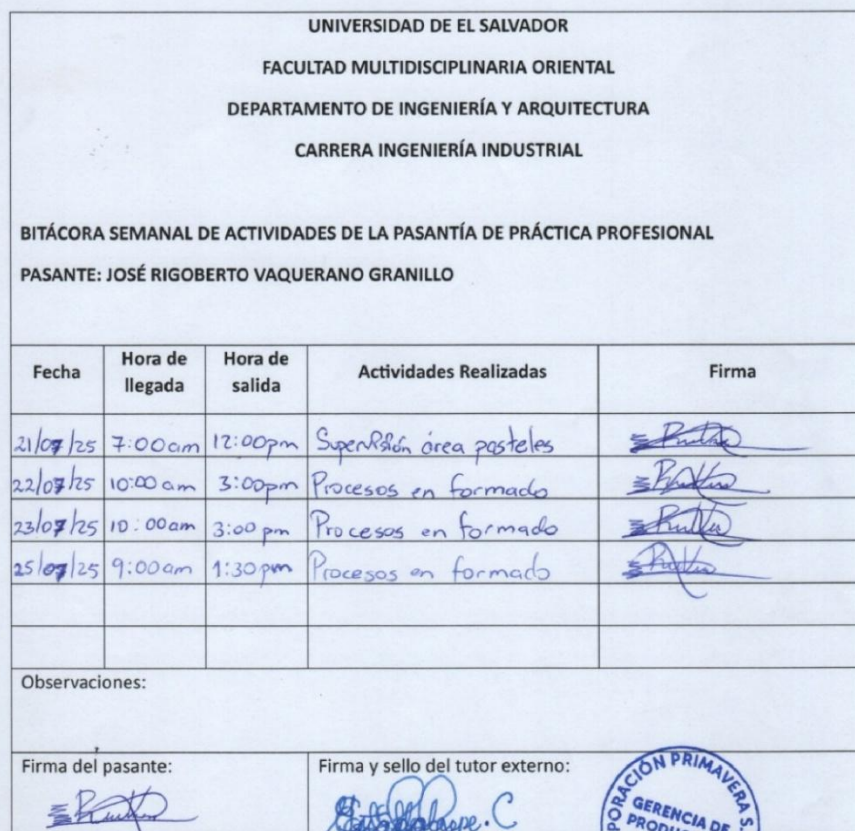 UNIVERSIDAD DE EL SALVADOR
FACULTAD MULTIDISCIPLINARIA ORIENTAL
DEPARTAMENTO DE INGENIERÍA Y ARQUITECTURA
CARRERA INGENIERÍA INDUSTRIAL
BITÁCORA SEMANAL DE ACTIVIDADES DE LA PASANTÍA DE PRÁCTICA PROFESIONAL
PASANTE: JOSÉ RIGOBERTO VAQUERANO GRANILLO
Fecha Hora de llegada Hora de salida Actividades Realizadas Firma
21/07/25 7:00am 12:00pm Supervisión área pasteles
22/07/25 10:00 am 3:00pm Procesos en formado
23/07/25 10:00am 3:00 pm Procesos en formado
25/07/25 9:00am 1:30pm Procesos en formado
Observaciones:
Firma del pasante: Firma y sello del tutor externo:
PRIMAVERA
GERENCIA DE